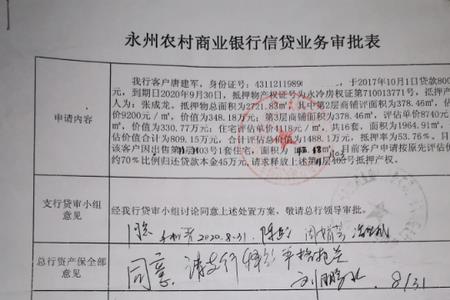 永州农村商业银行信贷业务审批表
我行客户唐建军，身份证号：4311211989 ，于2017年10月1日贷款800
元，到期日2020年9月30日，抵押物产权证号为永冷房权证第710013771号，抵押产
人为：张成龙。抵押物总面积为2721.83㎡，其中第2层商铺评面积为378.46㎡，估
价9200元/㎡，价值为348.18万元；第3层商铺面积为378.46㎡，评估单价8740元
㎡，价值为330.77万元；住宅评估单价4118元/㎡，共16套，面积为1964.91㎡，
估价值合计为809.15万元；合计评估总价值为1488.1万元，抵押率为53.76%。目
申请内容
因出售 403号1套住宅，面积为 ㎡，目前客户申请按原先评估价
约70%比例归还贷款本金45万元，请求释放上述 号抵押权。
支行贷审小组
意见
经我行贷审小组讨论同意上述处置方案，敬请总行领导审批。
同意 2020.8.31.
总行资产保全部
意见
同意 请支行 8/31